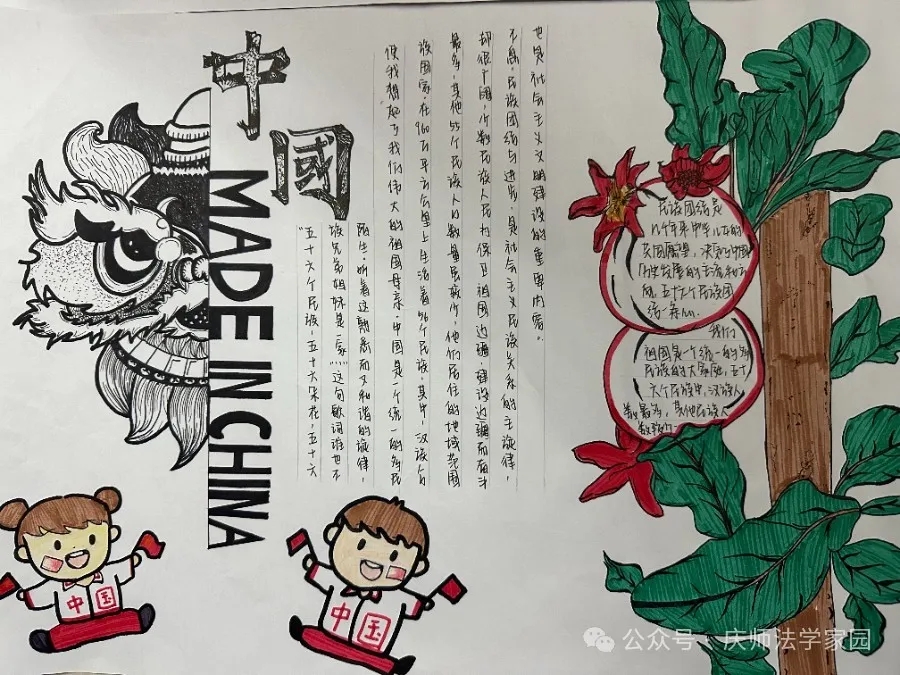 中國
MADE IN CHINA
“五十六个民族,五十六朵花,五十六
族兄弟姐妹是一家”,这句歌词谁也不
陌生,听着这熟悉而又和谐的旋律,
使我想起了我们伟大的祖国母亲。中国是一个统一的多民
族国家,在960万平方公里上生活着56个民族。其中,汉族人口
最多,其他55个民族人口数量比较少,他们居住的地域范围
却很广阔,少数民族人民为保卫祖国边疆 建设边疆而奋斗
不息,民族团结与进步,是社会主义民族关系的主旋律,
也是社会主义文明建设的重要内容。
民族团结是
几千年来中华儿女的
共同愿望,决定了中国
历史发展的主流和方
向,五十六个民族团
结一条心.
我们
祖国是一个统一的多
民族的大家庭,五十
六个民族中,汉族人
数最多,其他民族人
数较
中国
中国
公众号·庆师法学家园